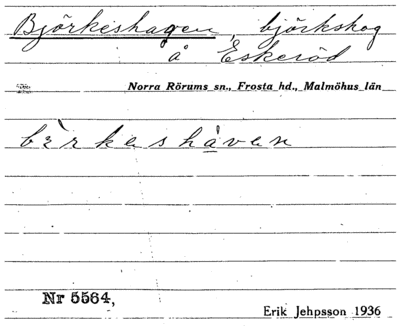 Björkeshagen, björkskog
å Eskeröd
Norra Rörums sn., Frosta hd., Malmöhus län
bèrkeshàven
Nr 5564,
Erik Jehpsson 1936